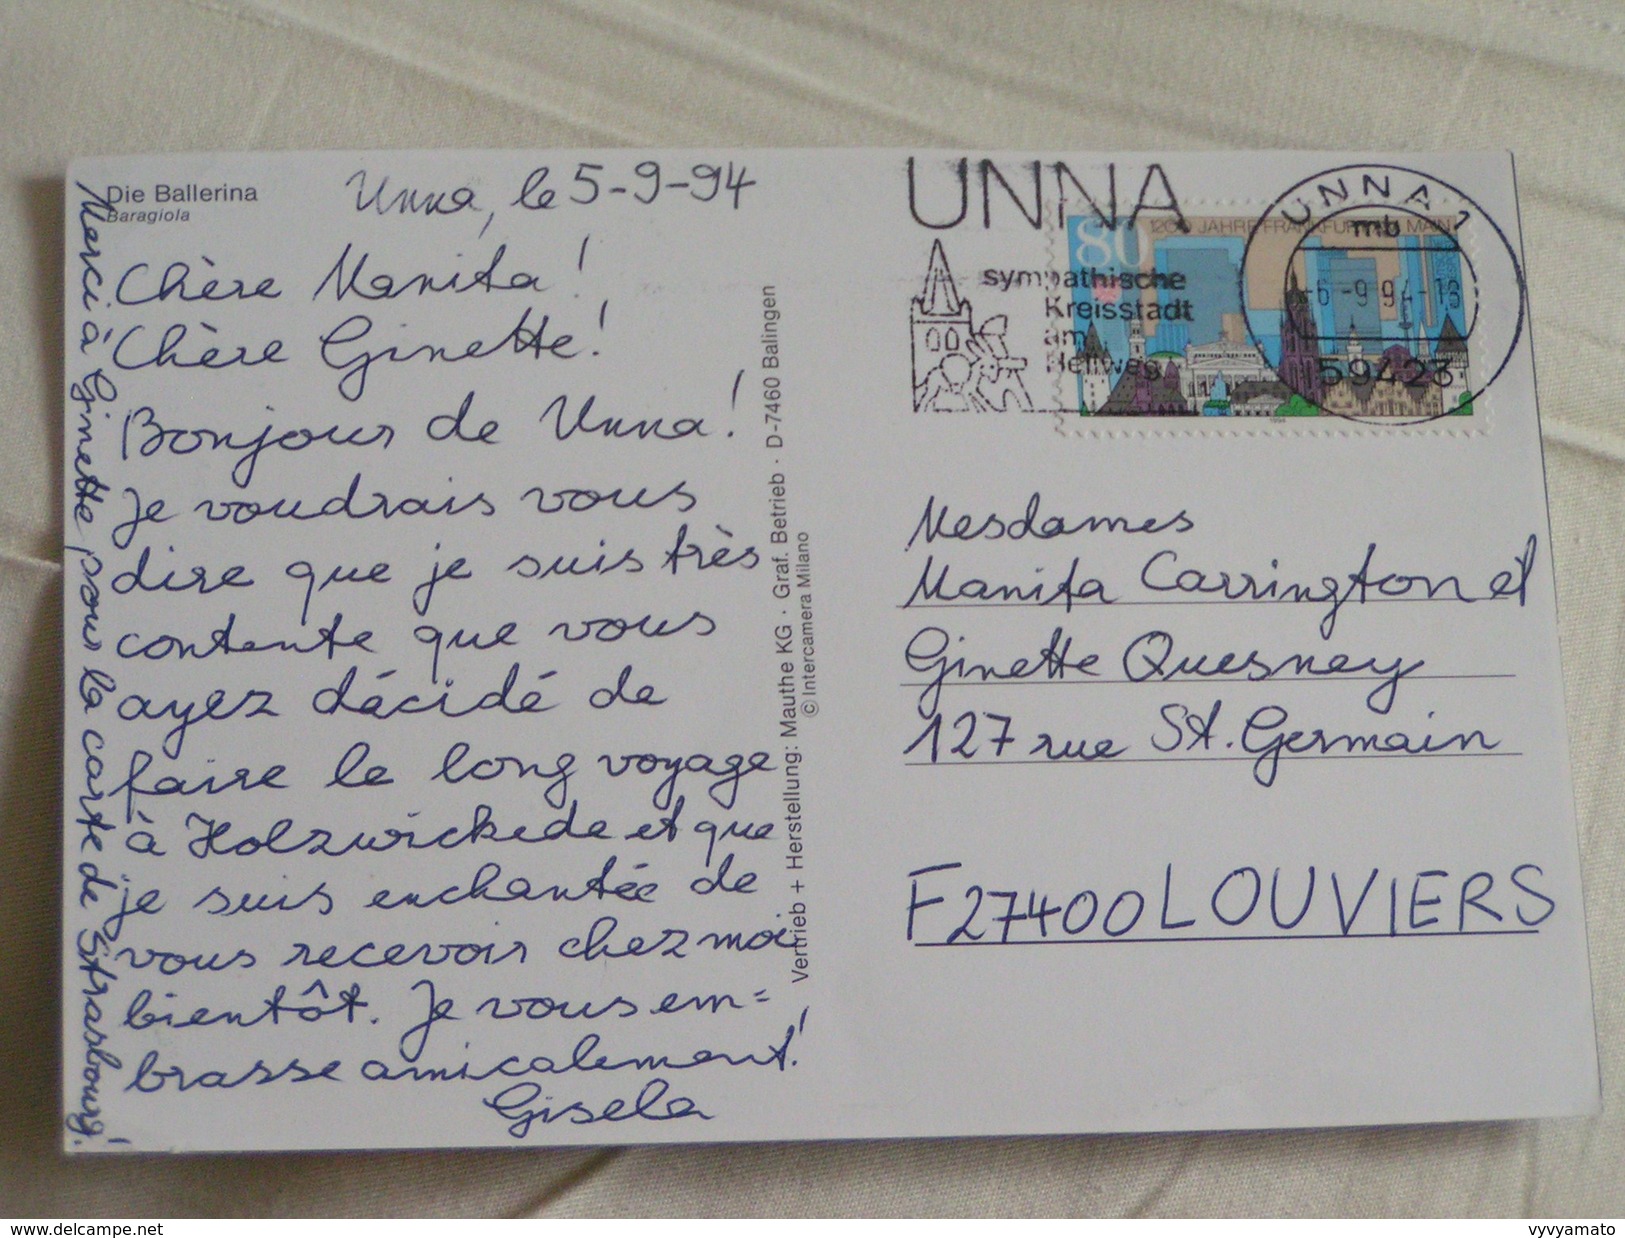 Die Ballerina
Baragiola
Unna, le 5-9-94
Chère Manita!
Chère Ginette!
Bonjour de Unna!
Je voudrais vous
dire que je suis très
contente que vous
ayez décidé de
faire le long voyage
à Holzwickede et que
je suis enchantée de
vous recevoir chez moi
bientôt. Je vous em=
brasse amicalement!
Gisela
Merci à Ginette pour la carte de Strasbourg!
Vertrieb + Herstellung: Mauthe KG · Graf. Betrieb · D-7460 Balingen
© Intercamera Milano
UNNA
sympathische
Kreisstadt
am
Hellweg
80
1200 JAHRE FRANKFURT AM MAIN
1994
UNNA 1
mb
-6.-9.94-16
59423
Mesdames
Manita Carrington et
Ginette Quesney
127 rue St. Germain
F27400 LOUVIERS
www.delcampe.net
vyvyamato